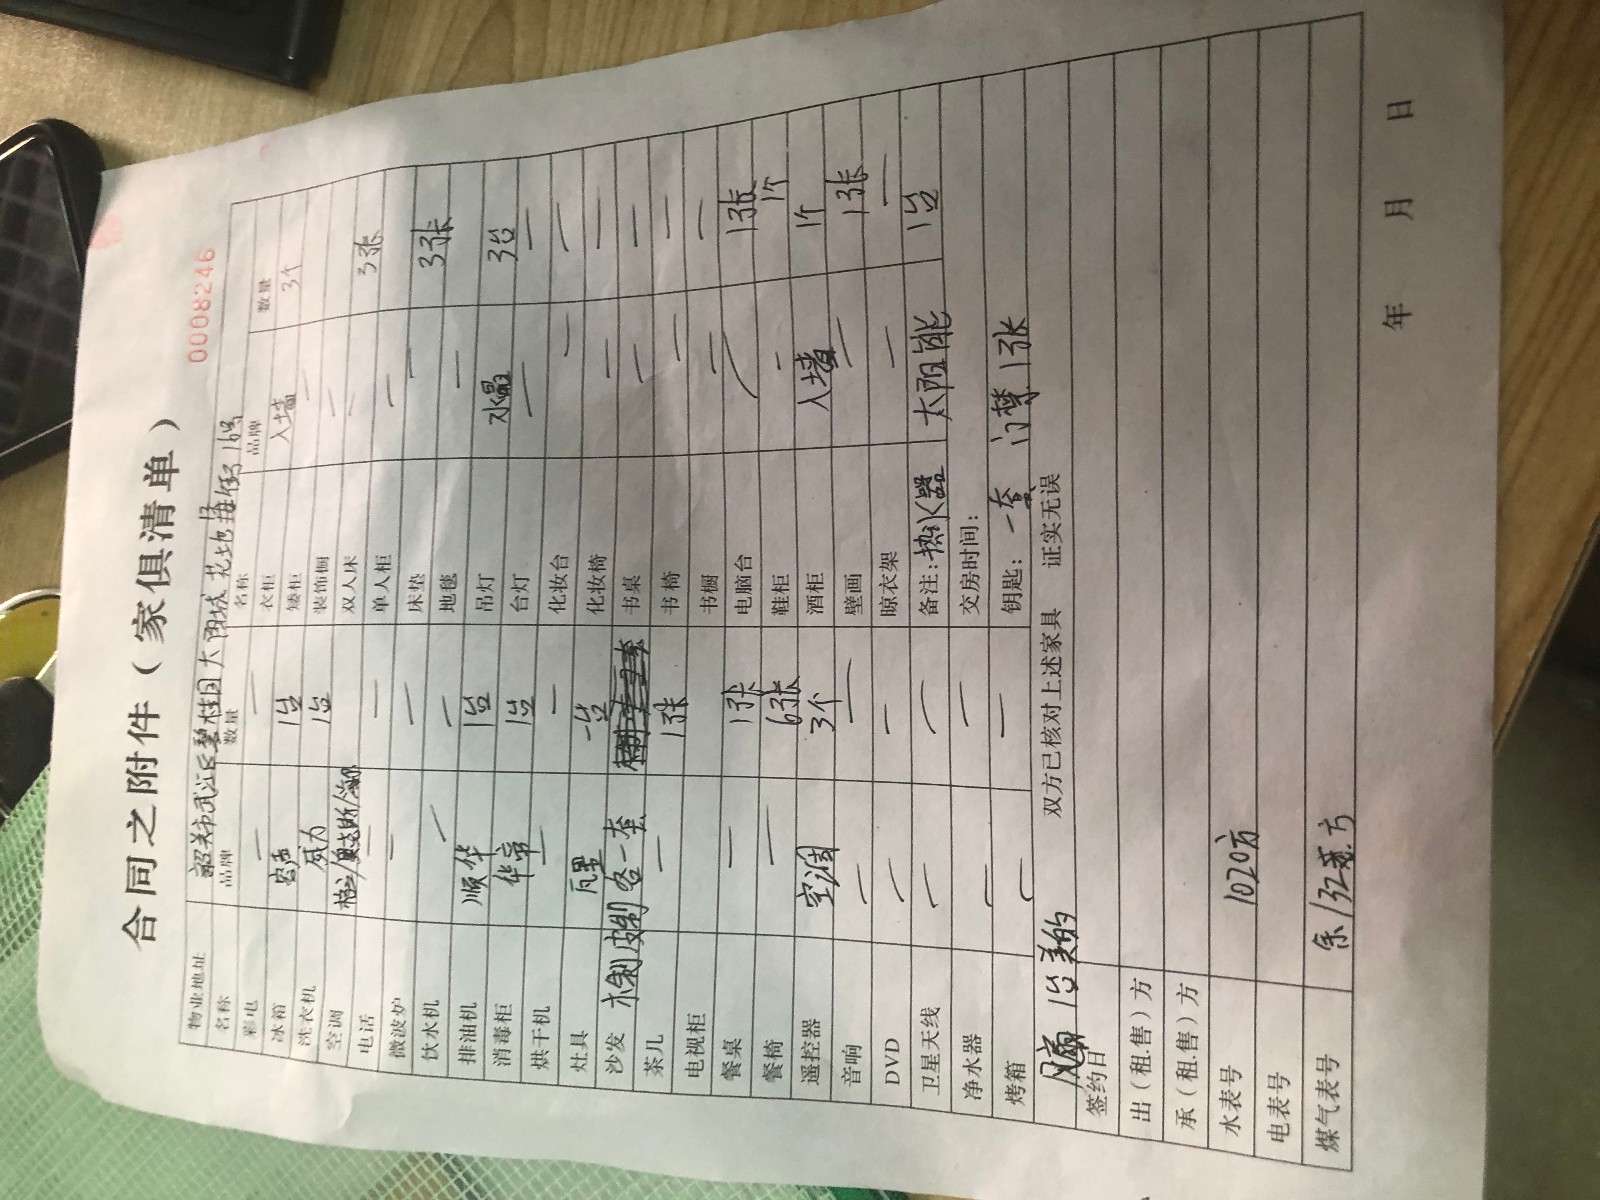 合同之附件（家俱清单）
0008246
物业地址 韶关市武江区碧桂园太阳城花地海街16号
名称 品牌 数量 名称 品牌 数量
彩电 — — 衣柜 入墙 3个
冰箱 1台 矮柜 —
洗衣机 威力 1台 装饰橱 —
空调 双人床 — 3张
电话 — — 单人柜 —
微波炉 — — 床垫 — 3张
饮水机 — — 地毯 —
排油机 顺华 1台 吊灯 水晶 3台
消毒柜 华帝 1台 台灯 — —
烘干机 — — 化妆台 — —
灶具 一台 化妆椅 — —
沙发 木制皮制各一套 书桌 — —
茶几 — 1张 书椅 — —
电视柜 书橱 — —
餐桌 — 1张 电脑台 — 1张
餐椅 — 6张 鞋柜 — 1个
遥控器 空调 3个 酒柜 入墙 1个
音响 — — 壁画 — 1张
DVD — — 晾衣架 — —
卫星天线 — — 备注：热水器 太阳能 1台
净水器 — — 交房时间：
烤箱 — — 钥匙：一套 门禁1张
1台美的 双方已核对上述家具 证实无误
签约日
出（租.售）方
承（租.售）方
水表号 1020方
电表号
煤气表号 余
年 月 日